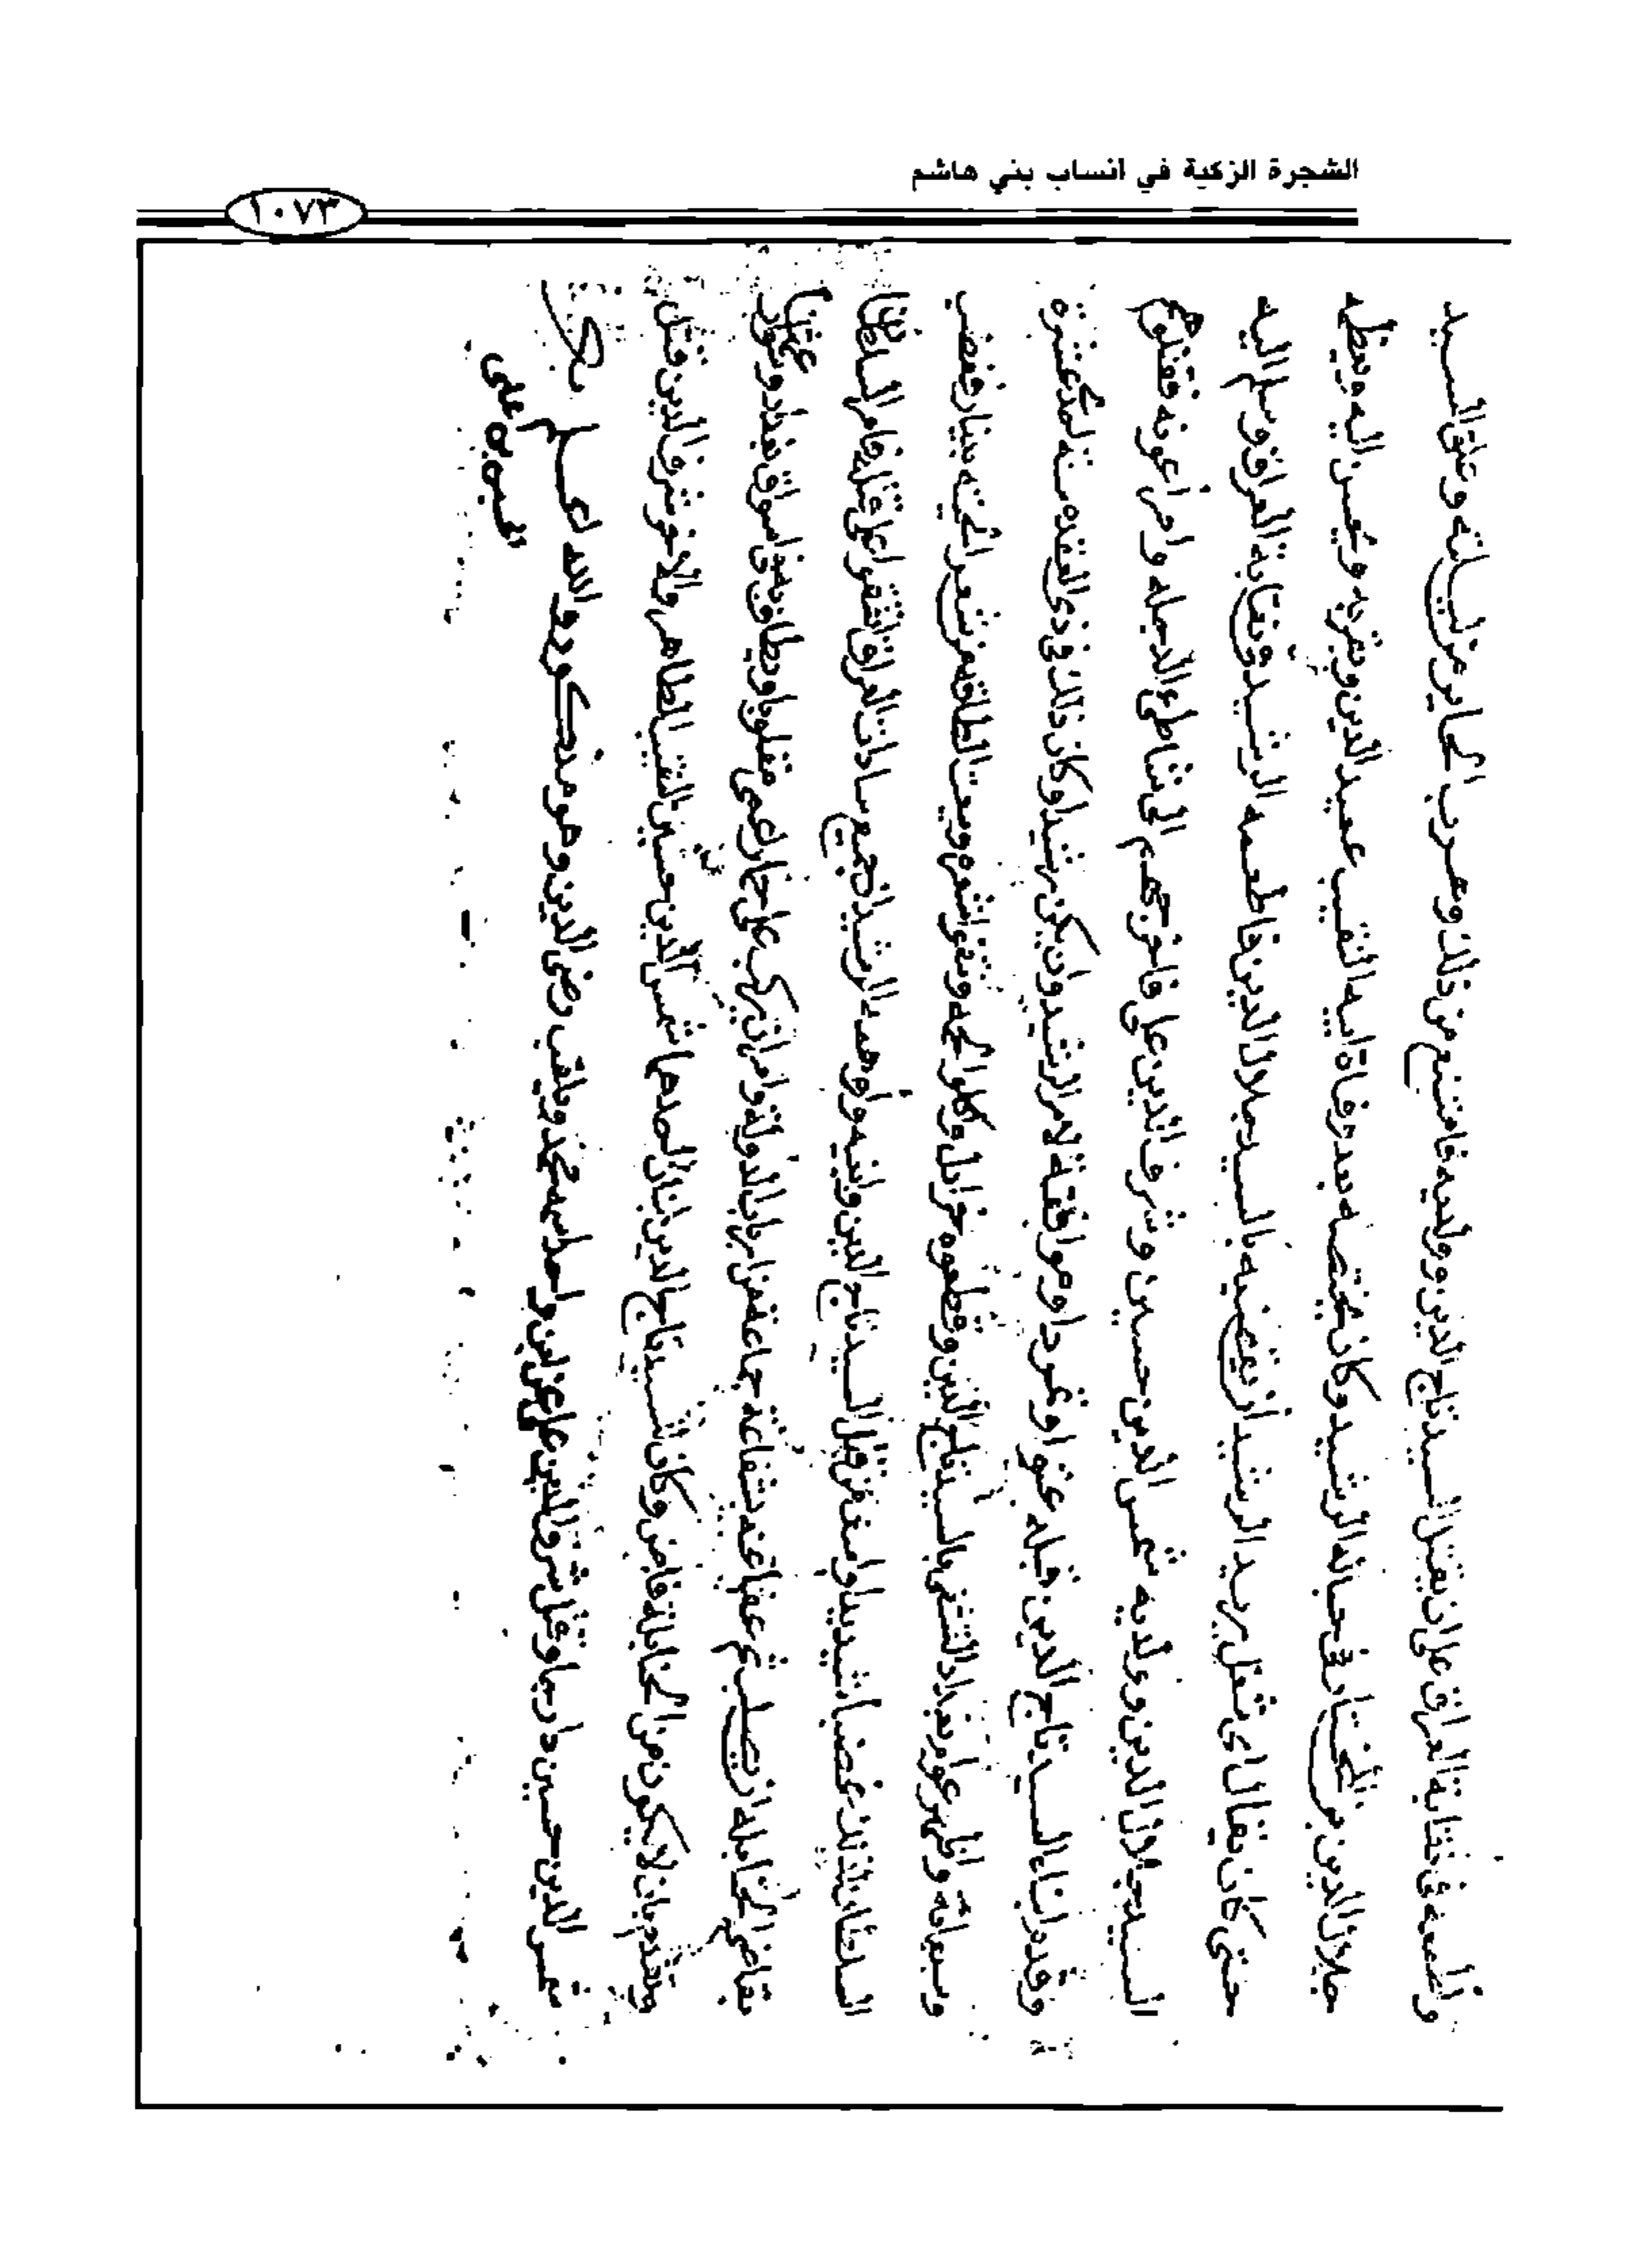 الشجرة الزكية في انساب بني هاشم
١٠٧٣
واطمعه فى نقابة العراق على ان يقتل السيد تاج الدين وولديه فامتنع من ذلك وهرب الى الحاير من ليلته وعلق السيد
جلال الدين بن المختار فى حباله الرشيد وكان يختصه بعد وفاة ابيه النقيب عميد الدين ويقربه ويحسن اليه ويعظمه
حتى كان يقال اى شغل يريد الرشيد ان يقضيه بالسيد جلال الدين فاطمعه الرشيد فى نقابة العراق وسلم اليه
السيد جلال الدين وولديه شمس الدين حسين وشرف الدين على فاخرجهم الى شاطى الدجله وامر اعوانه فقتلوهم
وقدم ابناء السيد تاج الدين قبله عتوا وتمردا وموافقة لامر الرشيد وان يكن رشيدا وكان ذلك فى ذى القعده سنة احدى عشرة
وسبعمائة واظهر عوام بغداد التشفى بالسيد تاج الدين وقطعوه خزائل واكلوا لحمه ونتفوا شعره وبيعت الطاقه من شعر لحيته بدينار فغضب
السلطان لذلك غضبا شديدا واسف من قتل السيد تاج الدين وابنيه واوهمه الرشيد ان جميع سادات العراق اتفقوا على قتله فامر السلطان
بقاضى الحنابله ان يصلب ثم عفا عنه بشفاعة جماعة من ارباب الدولة وامر ان يركب على حمار اعمى مقلوبا ويطاف به فى اسواق بغداد وشوارعها
وتقدم بان لا يكون من الحنابلة قاض وكان للسيد تاج الدين ابنان احدهما شمس الدين حسين النقيب الطاهر والاخر شرف الدين على قتل
شمس الدين حسين دارجا وقتل شرف الدين على عن ابن واحد اسمه محمد ويلقب رضى الدين وهو مذكور والله اعلم